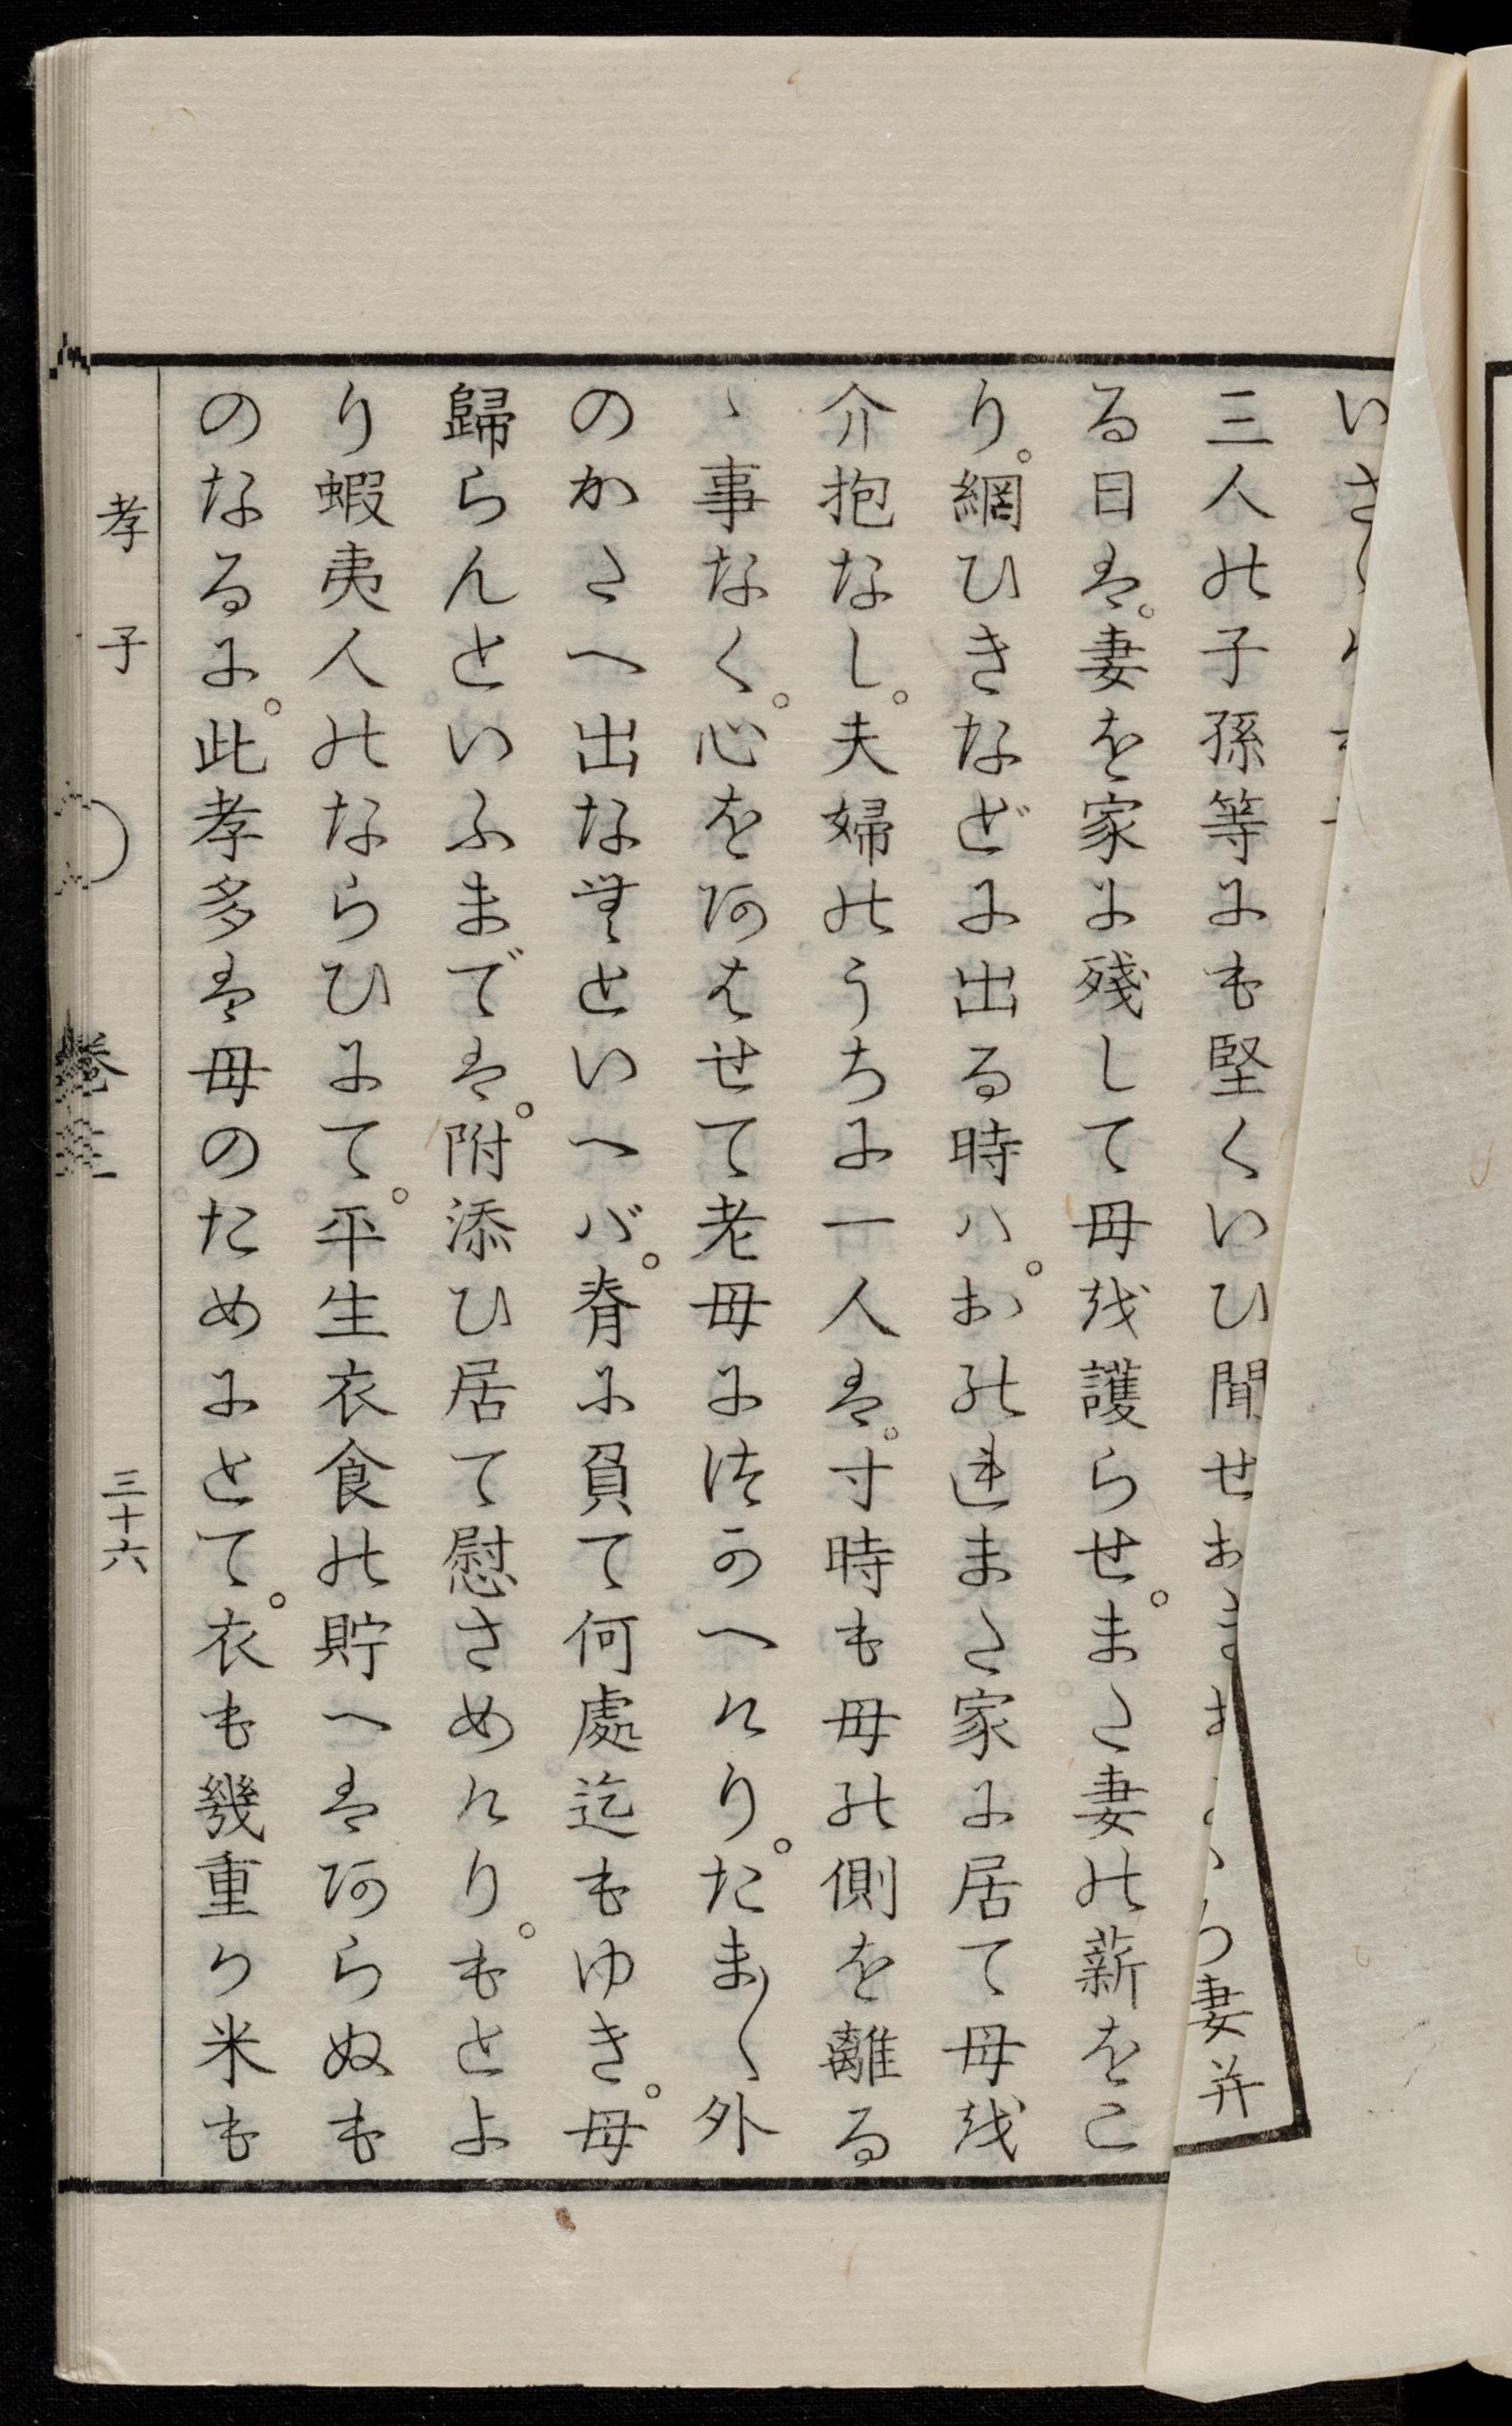 いさ
三人の子孫等にも堅くいひ聞せお妻并
る日は。妻を家に残して母を護らせ。また妻の薪をこ
り。網ひきなどに出る時ハ。おのれまた家に居て母を
介抱なし。夫婦のうちに一人は。寸時も母の側を離る
ゝ事なく。心をあはせて老母につかへけり。たま〱外
のかたへ出なむといへバ。脊に負て何處迄もゆき。母
歸らんといふまでは。附添ひ居て慰さめけり。もとよ
り蝦夷人のならひにて。平生衣食の貯へはあらぬも
のなるに。此孝多は母のためにとて。衣も幾重り米も
孝子 卷三 三十六